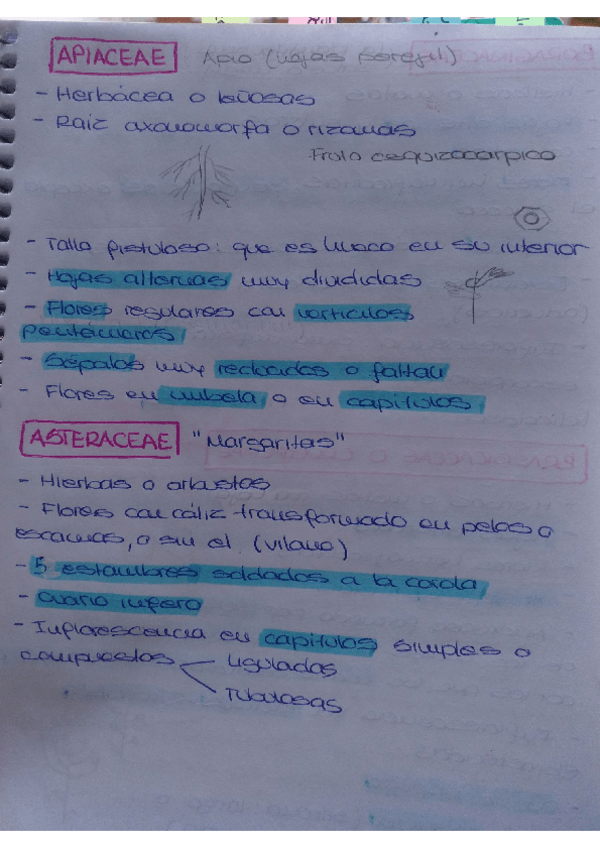 APIACEAE Apio (hojas perejil)
- Herbácea o leñosas
- Raiz axonomorfa o rizomas
Fruto cequizocarpico
- Tallo fistuloso: que es hueco en su interior
- Hojas alternas muy divididas
- Flores regulares con verticilos
pentámeros
- Sépalos muy reducidos o faltan
- Flores en umbela o en capitulos
ASTERACEAE "Margaritas"
- Hierbas o arbustos
- Flores con cáliz transformado en pelos o
escamas, o sin el (vilano)
- 5 estambres soldados a la corola
- Ovario infero
- Inflorescencia en capitulos simples o
compuestos
Liguladas
Tubulosas